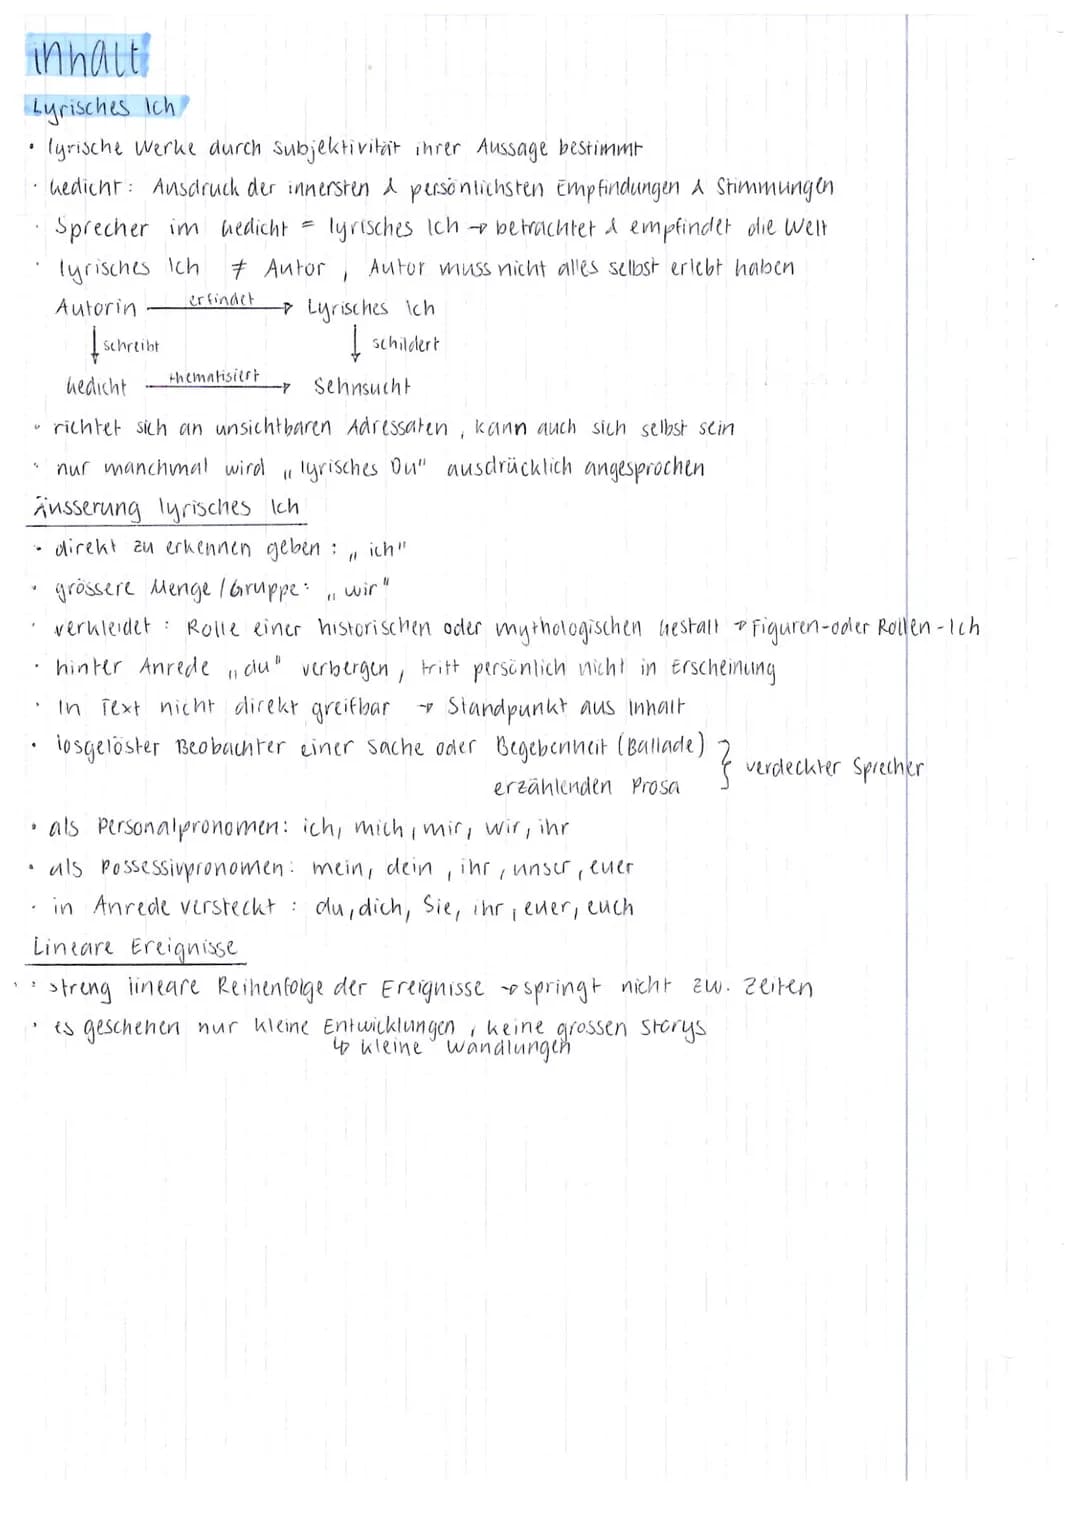 inhalt
Lyrisches Ich
• lyrische Werke durch Subjektivität ihrer Aussage bestimmt
• Gedicht: Ausdruck der innersten & persönlichsten Empfindungen & Stimmungen
• Sprecher im Gedicht = lyrisches Ich → betrachtet & empfindet die Welt
• lyrisches Ich ≠ Autor, Autor muss nicht alles selbst erlebt haben
Autorin erfindet → Lyrisches Ich
↓ schreibt ↓ schildert
Gedicht thematisiert → Sehnsucht
• richtet sich an unsichtbaren Adressaten, kann auch sich selbst sein
• nur manchmal wird „lyrisches Du" ausdrücklich angesprochen
Äusserung lyrisches Ich
• direkt zu erkennen geben: „ich"
• grössere Menge / Gruppe: „wir"
• verkleidet: Rolle einer historischen oder mythologischen Gestalt → Figuren-oder Rollen-Ich
• hinter Anrede „du" verbergen, tritt persönlich nicht in Erscheinung
• In Text nicht direkt greifbar → Standpunkt aus Inhalt
• losgelöster Beobachter einer Sache oder Begebenheit (Ballade)
erzählenden Prosa } verdeckter Sprecher
• als Personalpronomen: ich, mich, mir, wir, ihr
• als Possessivpronomen: mein, dein, ihr, unser, euer
• in Anrede versteckt: du, dich, Sie, ihr, euer, euch
Lineare Ereignisse
• streng lineare Reihenfolge der Ereignisse → springt nicht zw. Zeiten
• es geschehen nur kleine Entwicklungen, keine grossen Storys
↳ kleine Wandlungen